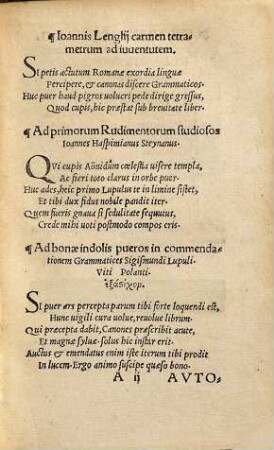 ¶ Ioannis Lenglij carmen tetra-
metrum ad iuuentutem.
SI petis actutum Romanæ exordia linguæ
Percipere, & canonas discere Grammaticos.
Huc puer haud pigros uolucri pede dirige gressus,
Quod cupis, hic præstat sub breuitate liber.
¶ Ad primorum Rudimentorum studiosos
Ioannes Haspinianus Steynanus.
QVi cupis Aönidûm cœlestia uisere templa,
Ac fieri toto clarus in orbe puer.
Huc ades, heic primo Lupulus te in limine sistet,
Et tibi dux fidus nobile pandit iter.
Quem fueris gnaua si sedulitate sequutus,
Crede mihi uoti postmodo compos eris.
¶ Ad bonæ indolis pueros in commenda-
tionem Grammatices Sigismundi Lupuli-
Viti Polanti-
ἑξάστιχομ.
SI puer ars percepta parum tibi forte loquendi est,
Hunc uigili cura uolue, reuolue librum.
Qui præcepta dabit, Canones præscribit acute,
Et magnæ syluæ solus hic instar erit.
Auctus & emendatus enim iste iterum tibi prodit
In lucem. Ergo animo suscipe quæso bono.
A ij AVTO-